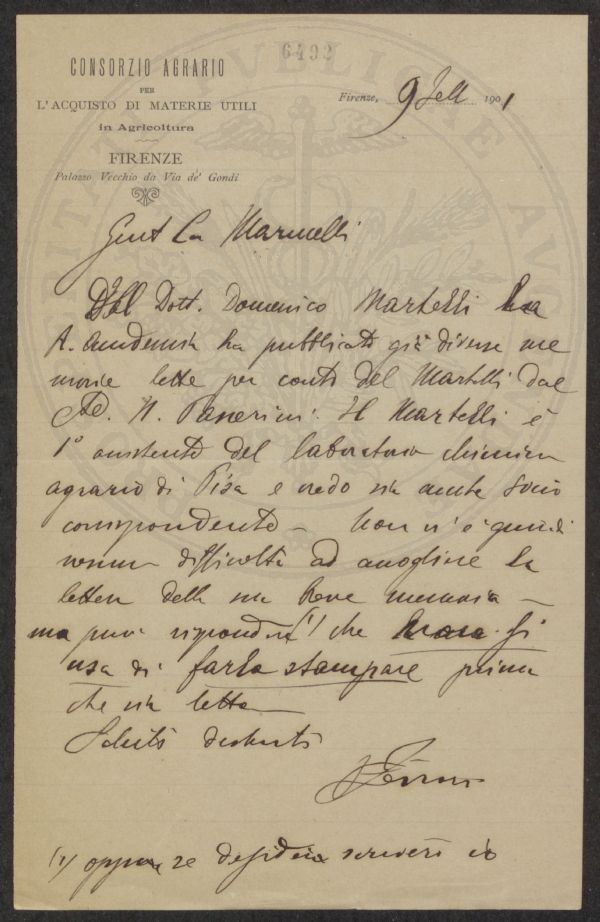 6492
CONSORZIO AGRARIO
PER
L'ACQUISTO DI MATERIE UTILI
in Agricoltura
FIRENZE
Palazzo Vecchio da Via de' Gondi
Firenze, 9 Sett 1901
Gent
Del Dott. Domenico Martelli
A. ha pubblicato già diverse me
morie lette per conto del Martelli dal
N. Passerini. Il Martelli è
1° assistente del laboratorio chimico
agrario di Pisa e credo sia anche socio
corrispondente — Non vi è quindi
nessuna difficoltà ad accogliere la
lettera della sua breve memoria —
ma può rispondere (1) che non si
usa di farla stampare prima
che sia letta
Saluti distinti
(1) oppure se desidera scriverò io